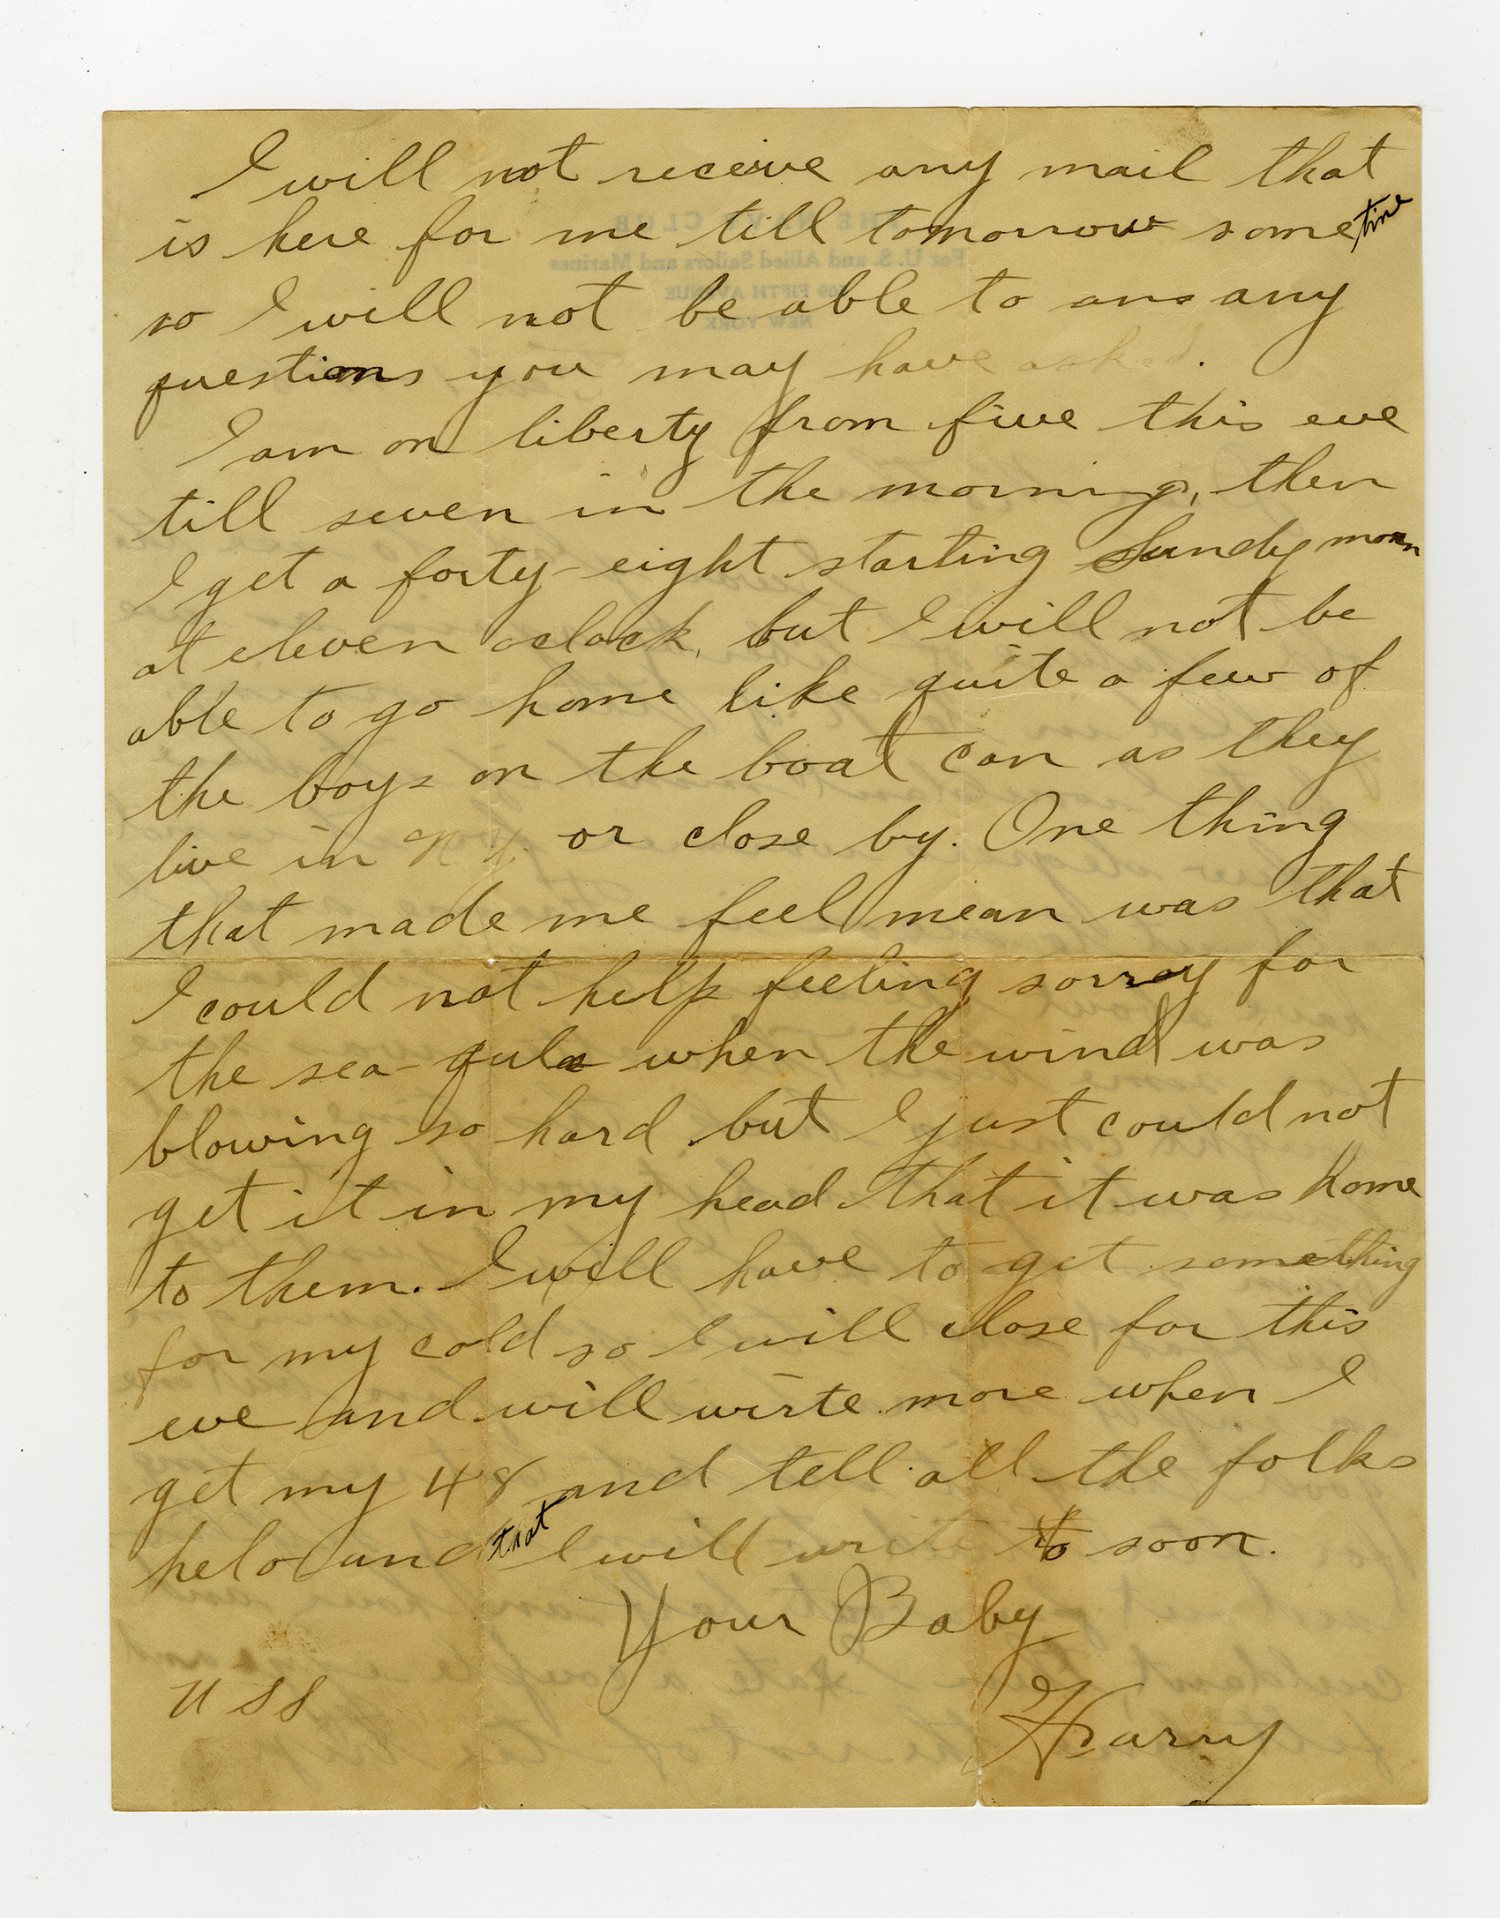 I will not receive any mail that
is here for me till tomorrow sometime
so I will not be able to ans any
questions you may have asked.
I am on liberty from five this eve
till seven in the morning, then
I get a forty-eight starting Sundy morn
at eleven oclock, but I will not be
able to go home like quite a few of
the boys on the boat can as they
live in N.Y. or close by. One thing
that made me feel mean was that
I could not help feeling sorry for
the sea-guls when the wind was
blowing so hard but I just could not
get it in my head that it was home
to them. I will have to get something
for my cold so I will close for this
eve and will wirte more when I
get my 48 and tell all the folks
helo and that I will write to soon.
Your Baby
Harry
USS
THE NAVY CLUB
For U. S. and Allied Sailors and Marines
509 FIFTH AVENUE
NEW YORK